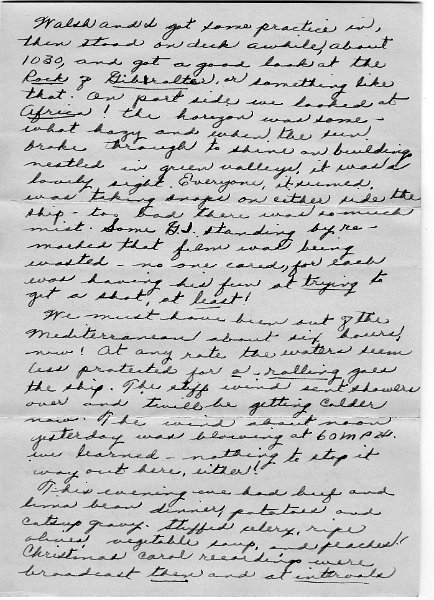 Walsh and I got some practice in,
then stood on deck awhile, about
1030, and got a good look at the
Rock of Gibralter, or something like
that. On port side we looked at
Africa! The horizon was some-
what hazy and when the sun
broke through to shine on buildings
nestled in green valleys, it was a
lovely sight. Everyone, it seemed,
was taking snaps on either side the
ship - too bad there was so much
mist. Some G.I. standing by re-
marked that film was being
wasted - no one cared, for each
was having his fun at trying to
get a shot, at least!
We must have been out of the
Mediterranean about six hours,
now! At any rate the waters seem
less protected for a-rolling goes
the ship. The stiff wind sent showers
over and twill be getting colder
now. The wind about noon
yesterday was blowing at 60 MPH.
we learned - nothing to stop it
way out here, either!
This evening we had beef and
lima bean dinner, potatoes and
catsup gravy. Stuffed celery, ripe
olives, vegetable soup, and peaches!
Christmas carol recordings were
broadcast then and at intervals